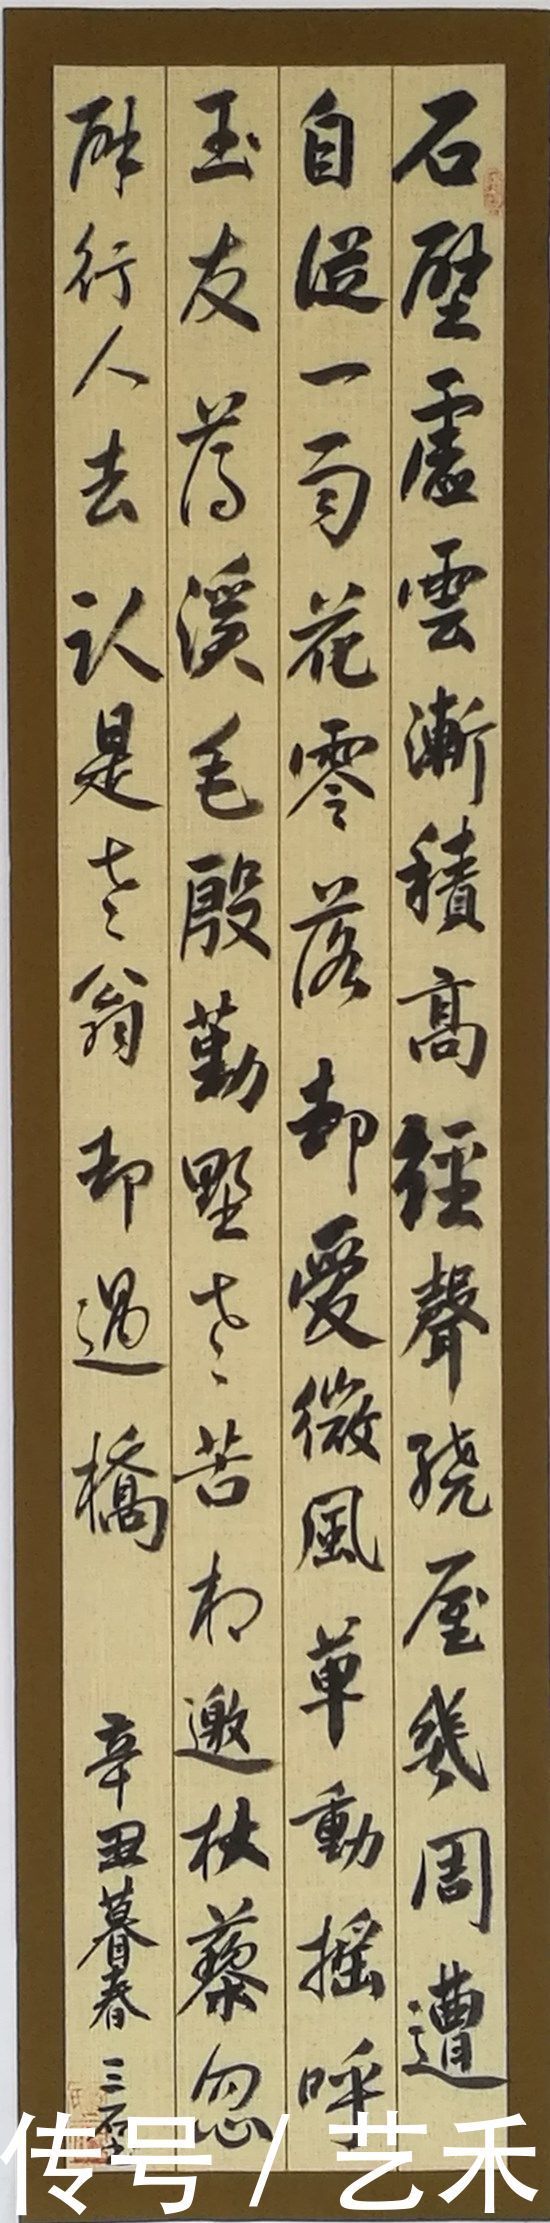 石壁虛雲漸積高經聲繞屋幾周遭
自從一雨花零落却愛微風草動搖呼
玉友薦溪毛殷勤野老苦相邀杖藜忽
避行人去認是老翁却過橋
辛丑暮春三石
传号/艺禾